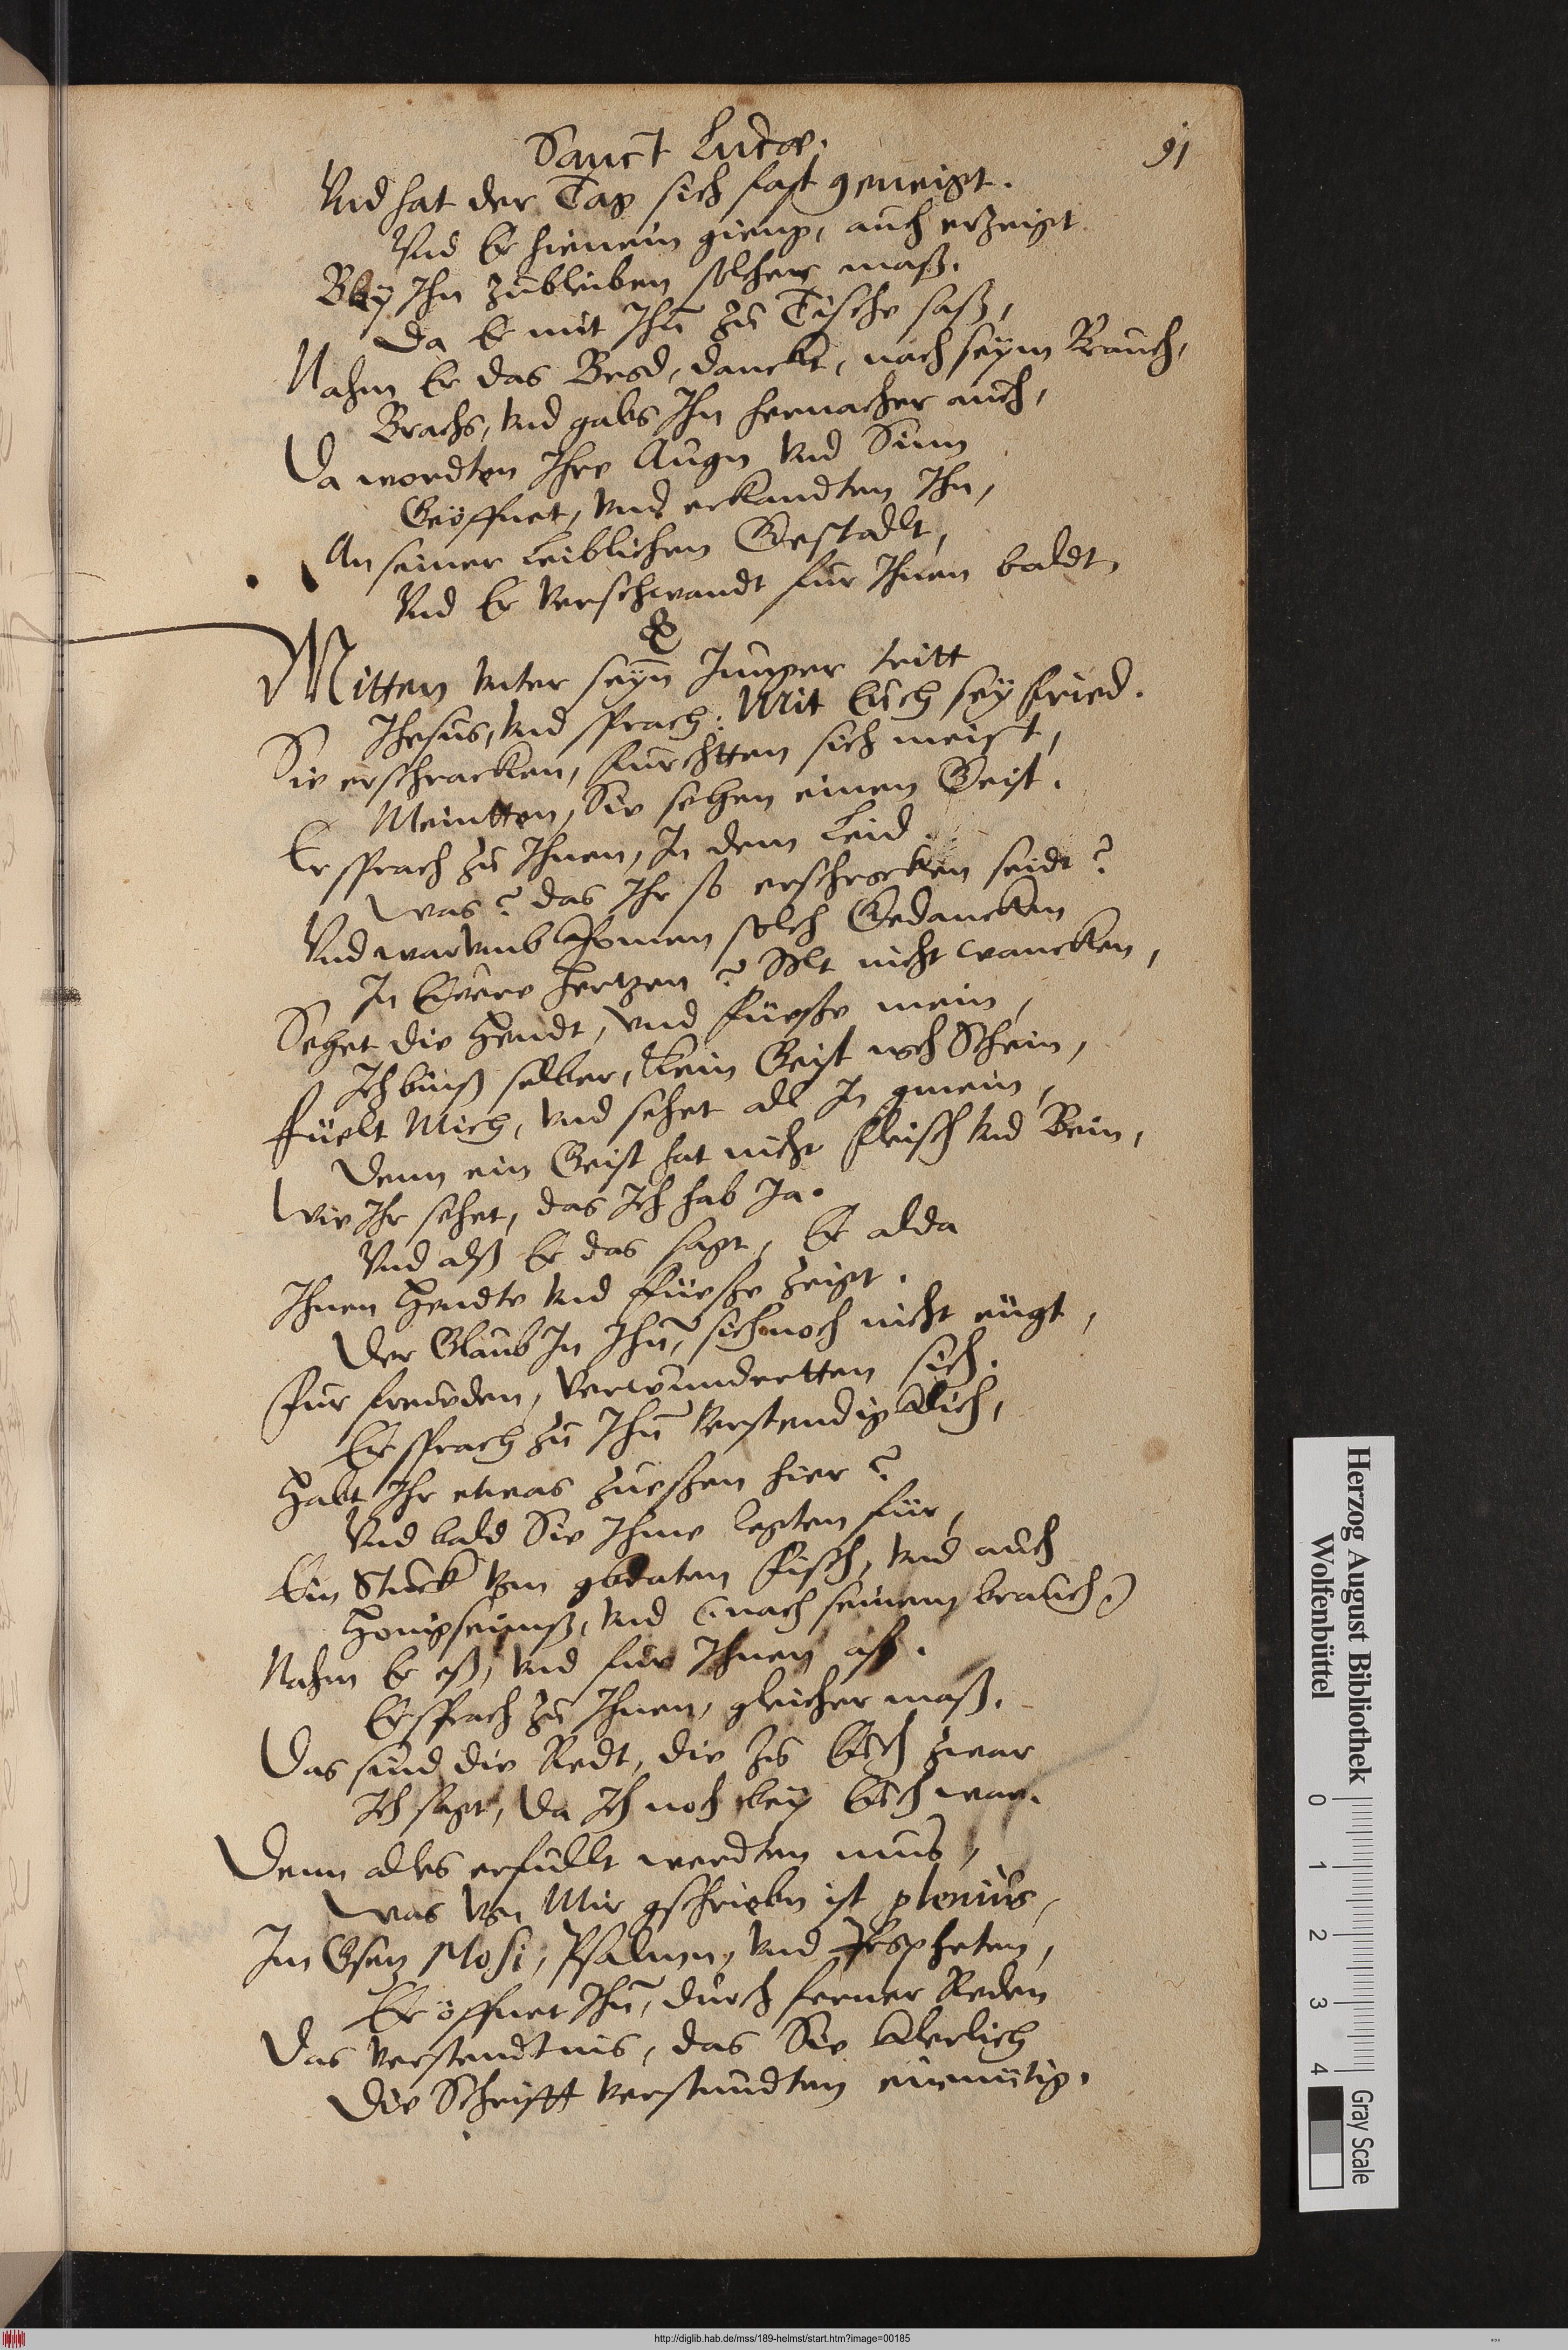 Sanct Lucæ.
91
Vnd hat der Tag sich fast geneigt.
Vnd Er hienein gieng, auch erzeigt
Bey Ihn zubleiben solcher maß.
Da Er mit Ihn̄ zu Tische saß,
Nahm Er das Brod, danckt, nach seym Brauch,
Brachs, vnd gabs Ihn hernacher auch,
Da wordten Ihre Augn vnd Sinn
Geöffnet, vnd erkandten Ihn,
An seiner leiblichen Gestadlt,
Vnd Er verschwandt fur Ihnen baldt
Mitten vnter seyn̄ Junger tritt
Jhesus, vnd sprach: Mit Euch sey fried.
Sie erschracken, furchtten sich meist,
Meintten, Sie sehen einen Geist.
Er sprach zu Ihnen, In dem Leid
Was? das Ihr so erschrocken seidt?
Vnd warumb komen solch Gedancken
In Ewere Hertzen? Solt nicht wancken,
Sehet die Hendt, vnd fuesse mein,
Ich binß selber, kein Geist noch Schein,
fuelt Mich, vnd sehet all In gmein,
Denn ein Geist hat nicht fleisch vnd Bein,
Wie Ihr sehet, das Ich hab Ja.
Vnd alß Er das sagt, Er alda
Ihnen Hendte vnd fuesse zeigt.
Der Glaub In Ihn̄, sich noch nicht eugt,
fur freuden, verwundertten sich.
Er sprach zu Ihn̄ verstendigklich,
Habt Ihr etwas zuessen hier?
Vnd bald Sie Ihme legten für,
Ein Stuck von gbraten fisch, vnd auch
Honigseimß, vnd (nach seinem brauch)
Nahm Er eß, vnd fur Ihnen aß.
Er sprach zu Ihnen, gleicher maß.
Das sind die Redt, die zu Euch zwar
Ich sagt, da Ich noch bey Euch war.
Denn alles erfullt werdten mus,
Was von Mir gschriebn ist plenius,
Im Gsetz Mosi, Psalmen, vnd Propheten,
Er öffnet Ihn̄, durch ferner Reden
Das verstendtnis, das Sie klerlich
Die Schrifft verstundten einmütig.
Herzog August Bibliothek
Wolfenbüttel
0 1 2 3 4
Gray Scale
http://diglib.hab.de/mss/189-helmst/start.htm?image=00185